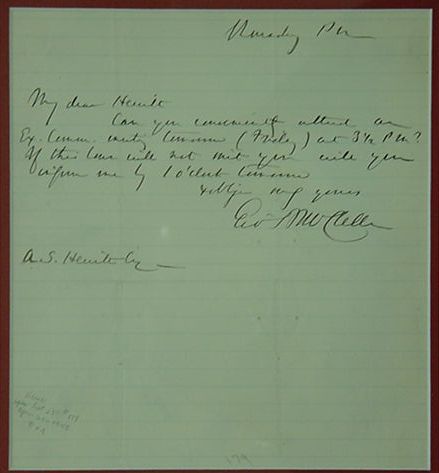 Thursday PM
My dear Hewitt
Can you conveniently attend an
Ex. Comm. meetg tomorrow (Friday) at 3½ PM?
If this hour will not suit you will you
inform me by 1 o'clock tomorrow
& oblige very yours
Geo B McClellan
A. S. Hewitt Esq
179